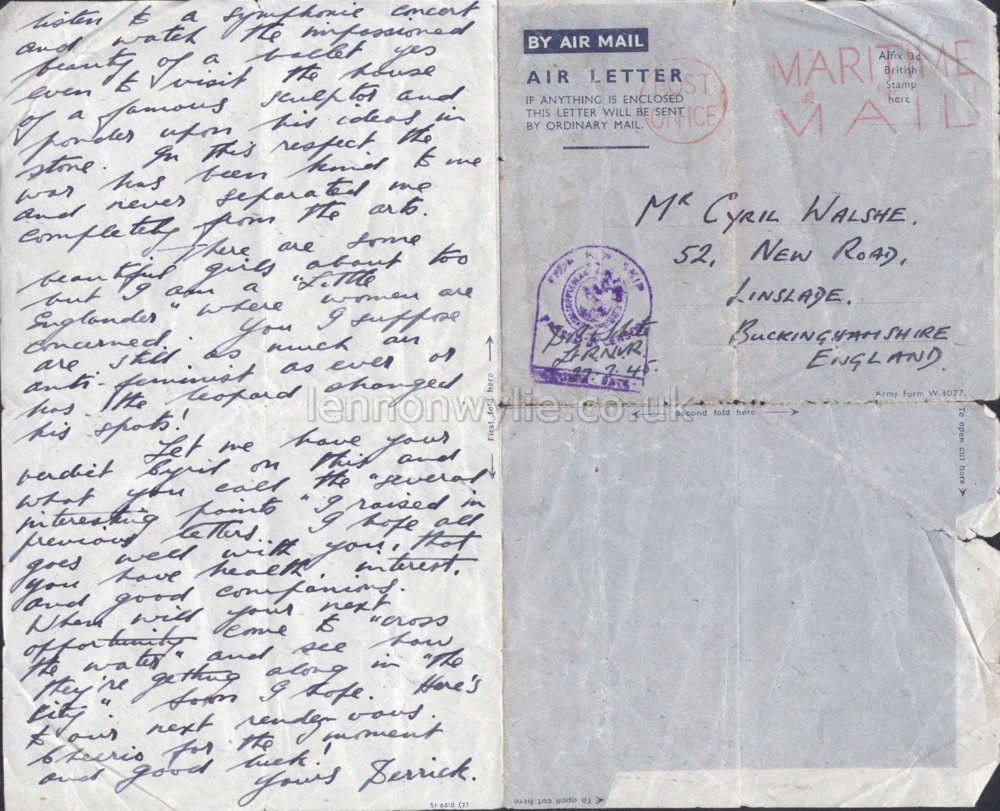 listen to a symphonic concert
and watch the impassioned
beauty of a ballet yes
even to visit the house
of a famous sculptor and
ponder upon his ideas in
stone. In this respect the
war has been kind to me
and never separated me
completely from the arts.
There are some
beautiful girls about too
but I am a "Little
Englander" where women are
concerned. You I suppose
are still as much an
anti-feminist as ever or
has the leopard changed
his spots!
Let me have your
verdict Cyril on this and
what you call the "several
interesting points" I raised in
previous letters. I hope all
goes well with you, that
you have health, interest,
and good companions.
When will your next
opportunity come to "cross
the water" and see how
they're getting along in "the
city". Soon I hope. Here's
to our next rendezvous.
Cheerio for the moment
and good luck!
Yours Derrick.
51-6010 (2)
First fold here
BY AIR MAIL
AIR LETTER
IF ANYTHING IS ENCLOSED
THIS LETTER WILL BE SENT
BY ORDINARY MAIL.
POST
OFFICE
MARITIME
MAIL
Affix 3d.
British
Stamp
here
MR CYRIL WALSHE.
52, NEW ROAD,
LINSLADE.
BUCKINGHAMSHIRE
ENGLAND.
FROM H.M. SHIP
RNVR
Army Form W.3077.
Second fold here
To open cut here
To open cut here
lennonwylie.co.uk